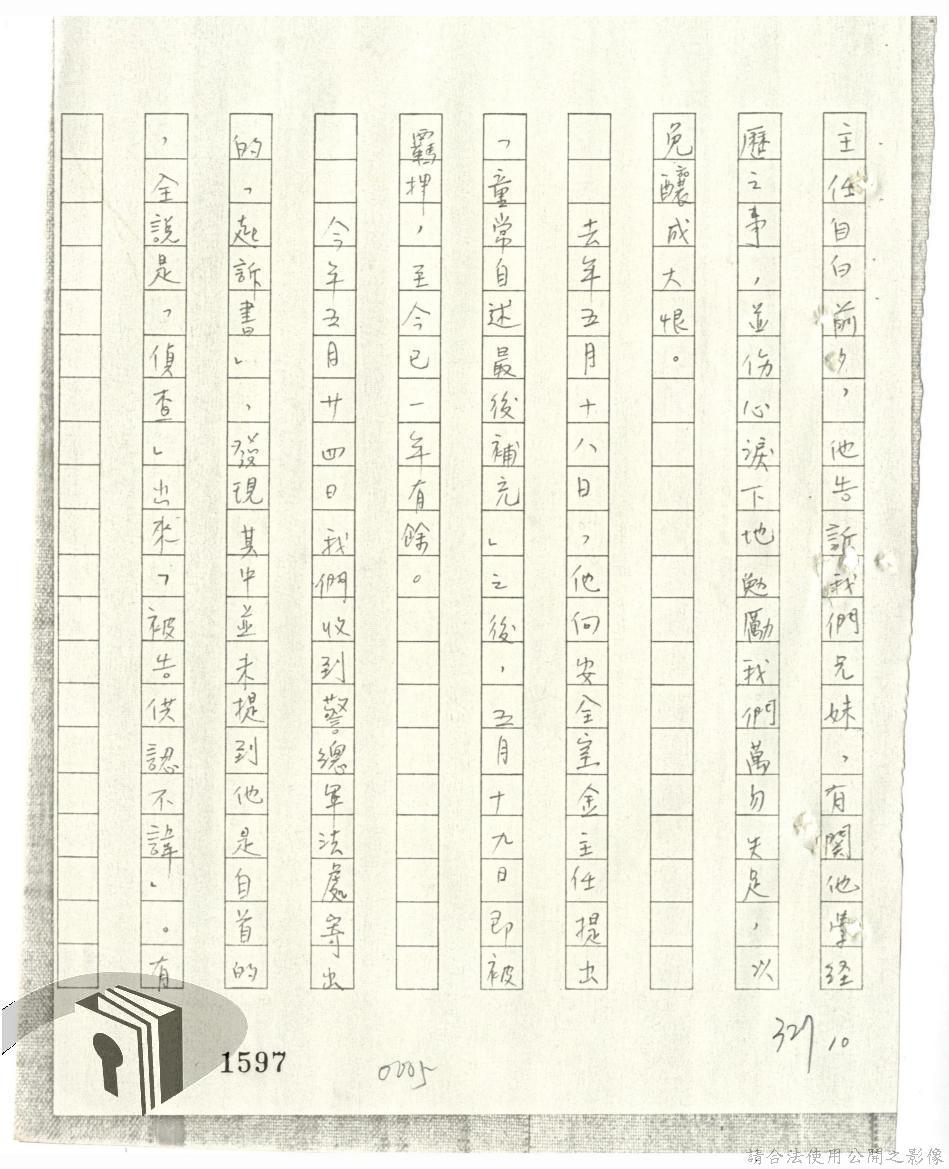 主任自白前夕，他告訴我們兄妹，有關他學経
歷之事，並伤心淚下地勉勵我們萬勿失足，以
免釀成大恨。
去年五月十八日，他向安全室金主任提出
「童常自述最後補充」之後，五月十九日即被
羈押，至今已一年有餘。
今年五月廿四日我們收到警總軍法處寄出
的「起訴書」，發現其中並未提到他是自首的
，全說是「偵查」出來「被告供認不諱」。有
327 10
1597
0005
請合法使用公開之影像